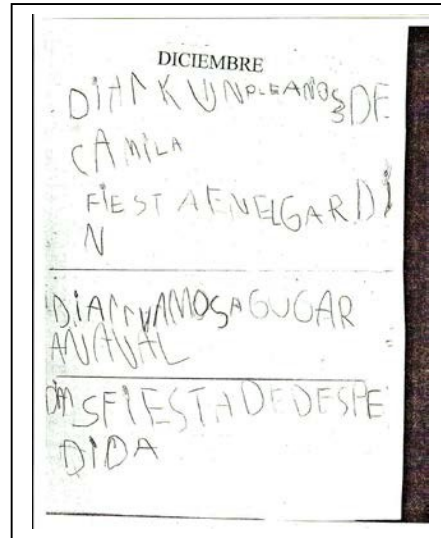 DICIEMBRE
DiA KUNPLEAÑOS DE
CAMiLA
FiESTA ENELGARDi
N
DiA VAMOSAGUGAR
ANAVAL
FiESTADEDESPE
DiDA